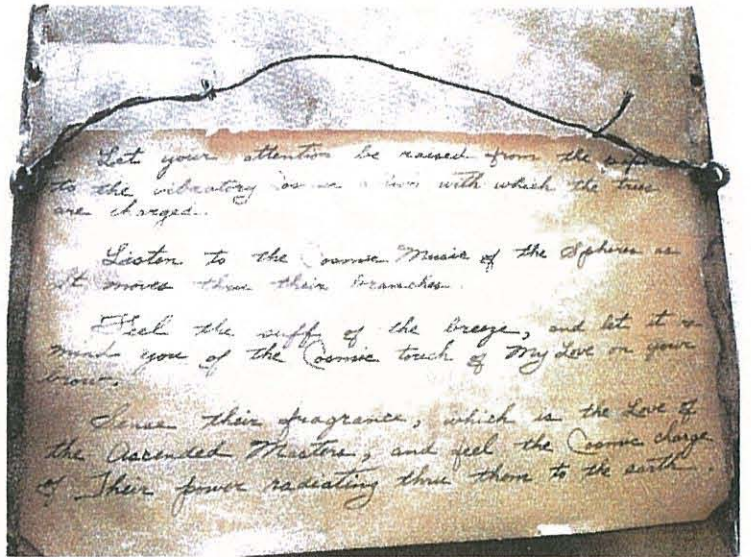 Let your attention be raised from the
to the vibratory action with which the trees
are charged.
Listen to the Cosmic Music of the Spheres as
It moves thru their branches.
Feel the of the breeze, and let it re-
mind you of the Cosmic touch of My Love on your
brow.
Sense their fragrance, which is the Love of
the Ascended Masters, and feel the Cosmic charge
of Their power radiating thru them to the earth.